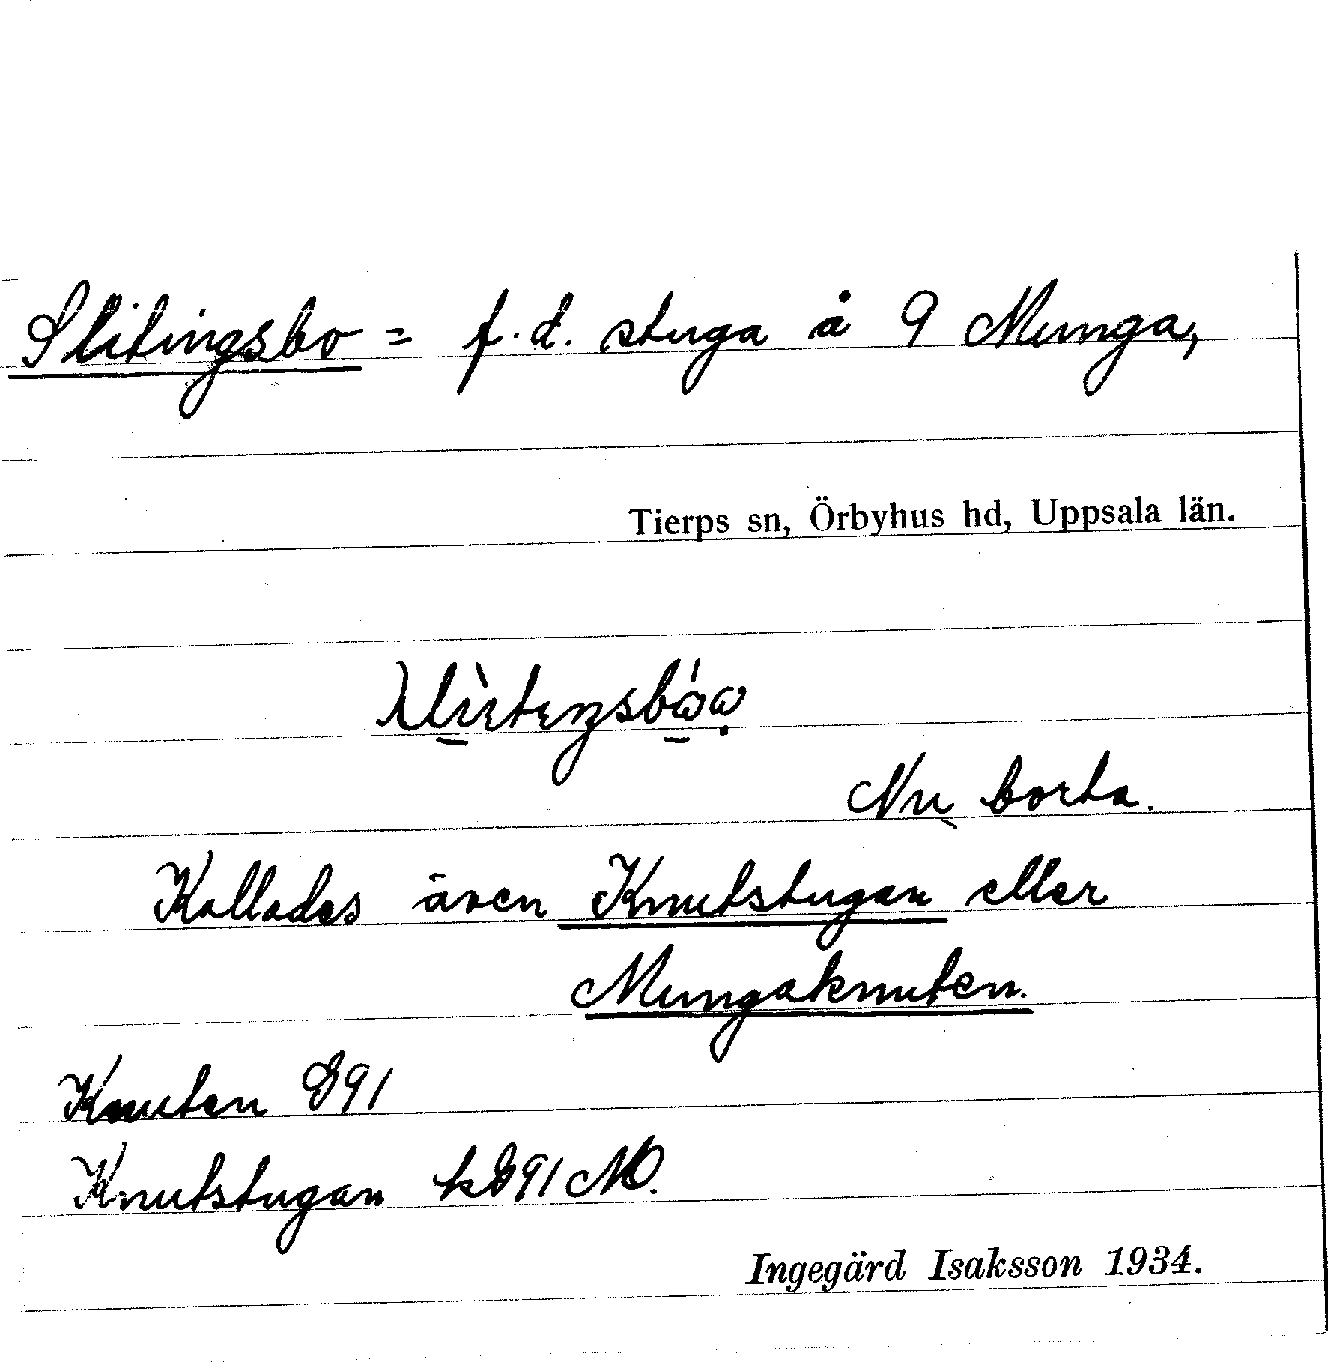 Slitingsbo = f.d. stuga å 9 Munga,
Tierps sn, Örbyhus hd, Uppsala län.
Nu borta.
Kallades även Knutstugan eller
Mungaknuten.
Knuten E91
Knutstugan kE91 MO.
Ingegärd Isaksson 1934.